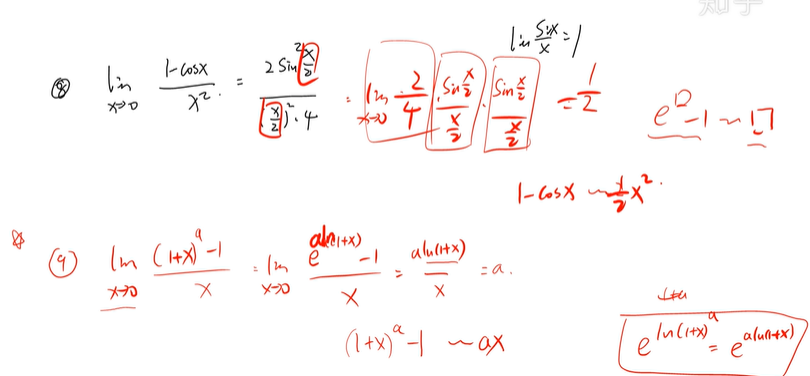 知乎
lim sinx/x = 1
⑧ lim x→0 (1-cosx)/x² = 2sin²(x/2)/((x/2)²·4) = lim x→0 2/4 · sin(x/2)/(x/2) · sin(x/2)/(x/2) = 1/2
e^□ -1 ~ □
1-cosx ~ 1/2 x².
⑨ lim x→0 ((1+x)^a -1)/x = lim x→0 (e^(aln(1+x)) -1)/x = aln(1+x)/x = a.
(1+x)^a -1 ~ ax
e^(ln(1+x)^a) = e^(aln(1+x))